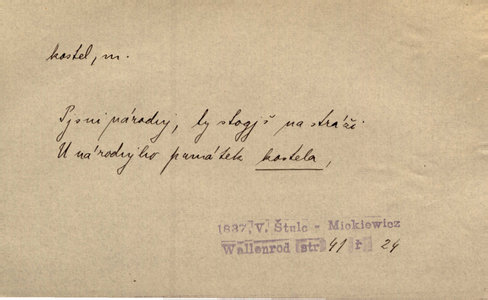 kostel, m.
Pjsni národnj, ty stogjš na stráži
U národnjho památek kostela,
1837, V. Štulc - Mickiewicz
Wallenrod str 41 ř 24